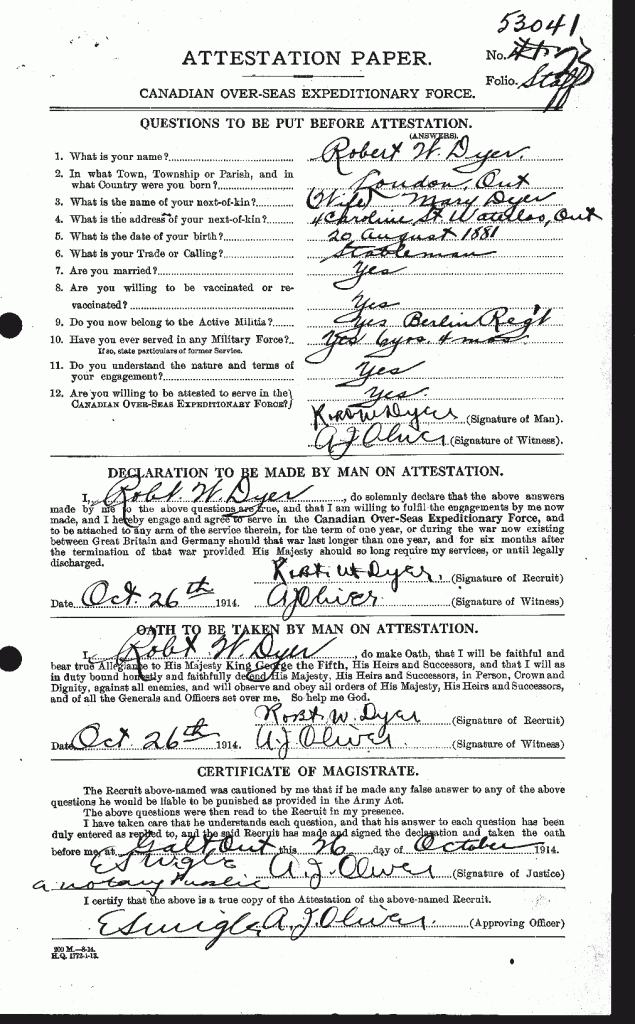 53041
ATTESTATION PAPER.
No.
Folio. Staff
CANADIAN OVER-SEAS EXPEDITIONARY FORCE.
QUESTIONS TO BE PUT BEFORE ATTESTATION.
(ANSWERS).
1. What is your name? Robert W. Dyer.
2. In what Town, Township or Parish, and in
what Country were you born? London, Ont
3. What is the name of your next-of-kin? (Wife) Mary Dyer
4. What is the address of your next-of-kin? 4 Caroline St. Waterloo, Ont
5. What is the date of your birth? 20 August 1881
6. What is your Trade or Calling? Stableman
7. Are you married? Yes
8. Are you willing to be vaccinated or re-
vaccinated? Yes
9. Do you now belong to the Active Militia? Yes Berlin Reg't
10. Have you ever served in any Military Force? Yes 6 yrs 4 mos.
If so, state particulars of former Service.
11. Do you understand the nature and terms of
your engagement? Yes
12. Are you willing to be attested to serve in the
CANADIAN OVER-SEAS EXPEDITIONARY FORCE? Yes.
Robt W Dyer (Signature of Man).
A J Oliver (Signature of Witness).
DECLARATION TO BE MADE BY MAN ON ATTESTATION.
I, Robt W. Dyer, do solemnly declare that the above answers
made by me to the above questions are true, and that I am willing to fulfil the engagements by me now
made, and I hereby engage and agree to serve in the Canadian Over-Seas Expeditionary Force, and
to be attached to any arm of the service therein, for the term of one year, or during the war now existing
between Great Britain and Germany should that war last longer than one year, and for six months after
the termination of that war provided His Majesty should so long require my services, or until legally
discharged.
Robt W Dyer. (Signature of Recruit)
Date Oct. 26th 1914. A J Oliver. (Signature of Witness)
OATH TO BE TAKEN BY MAN ON ATTESTATION.
I, Robt W. Dyer, do make Oath, that I will be faithful and
bear true Allegiance to His Majesty King George the Fifth, His Heirs and Successors, and that I will as
in duty bound honestly and faithfully defend His Majesty, His Heirs and Successors, in Person, Crown and
Dignity, against all enemies, and will observe and obey all orders of His Majesty, His Heirs and Successors,
and of all the Generals and Officers set over me. So help me God.
Robt W. Dyer (Signature of Recruit)
Date Oct. 26th 1914. A J Oliver. (Signature of Witness)
CERTIFICATE OF MAGISTRATE.
The Recruit above-named was cautioned by me that if he made any false answer to any of the above
questions he would be liable to be punished as provided in the Army Act.
The above questions were then read to the Recruit in my presence.
I have taken care that he understands each question, and that his answer to each question has been
duly entered as replied to, and the said Recruit has made and signed the declaration and taken the oath
before me, at Galt Ont this 26 day of October 1914.
A. J. Oliver (Signature of Justice)
a notary Public
I certify that the above is a true copy of the Attestation of the above-named Recruit.
A. J. Oliver. (Approving Officer)
200 M.—8-14.
H.Q. 1772-1-13.